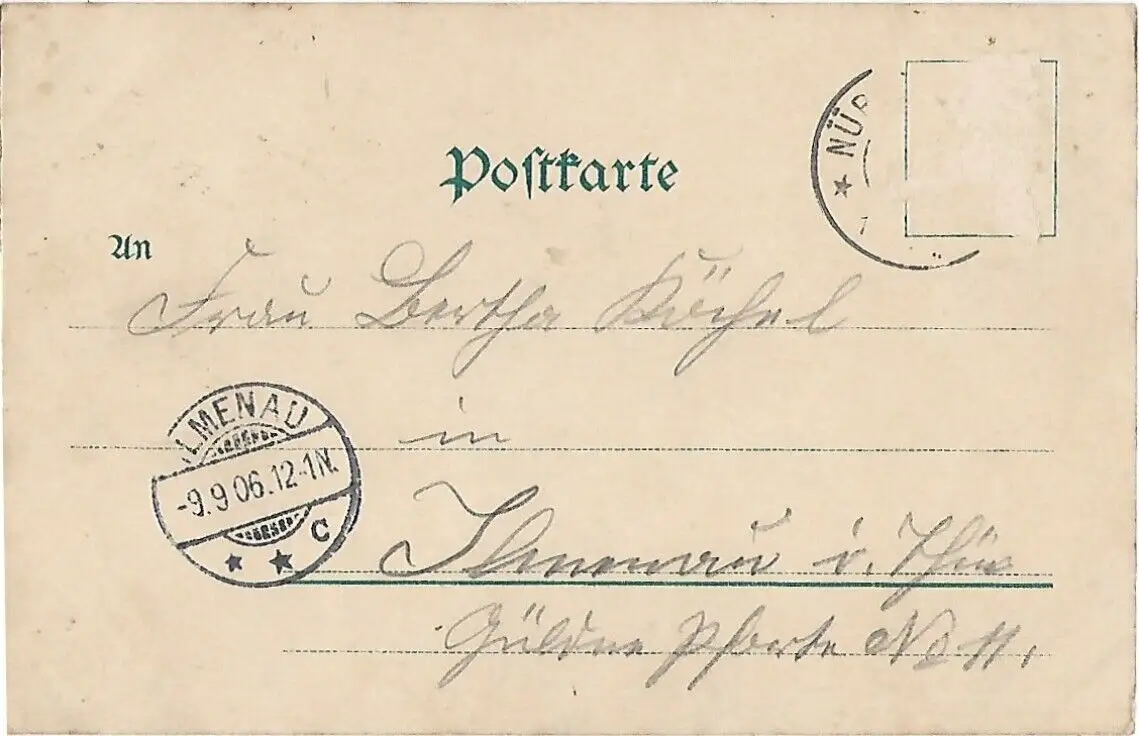 Postkarte
NÜR
An
Frau Bertha Köchel
in
ILMENAU
-9.9 06.12-1N.
C
Ilmenau i. Thür
Güldne Pforte № 11.